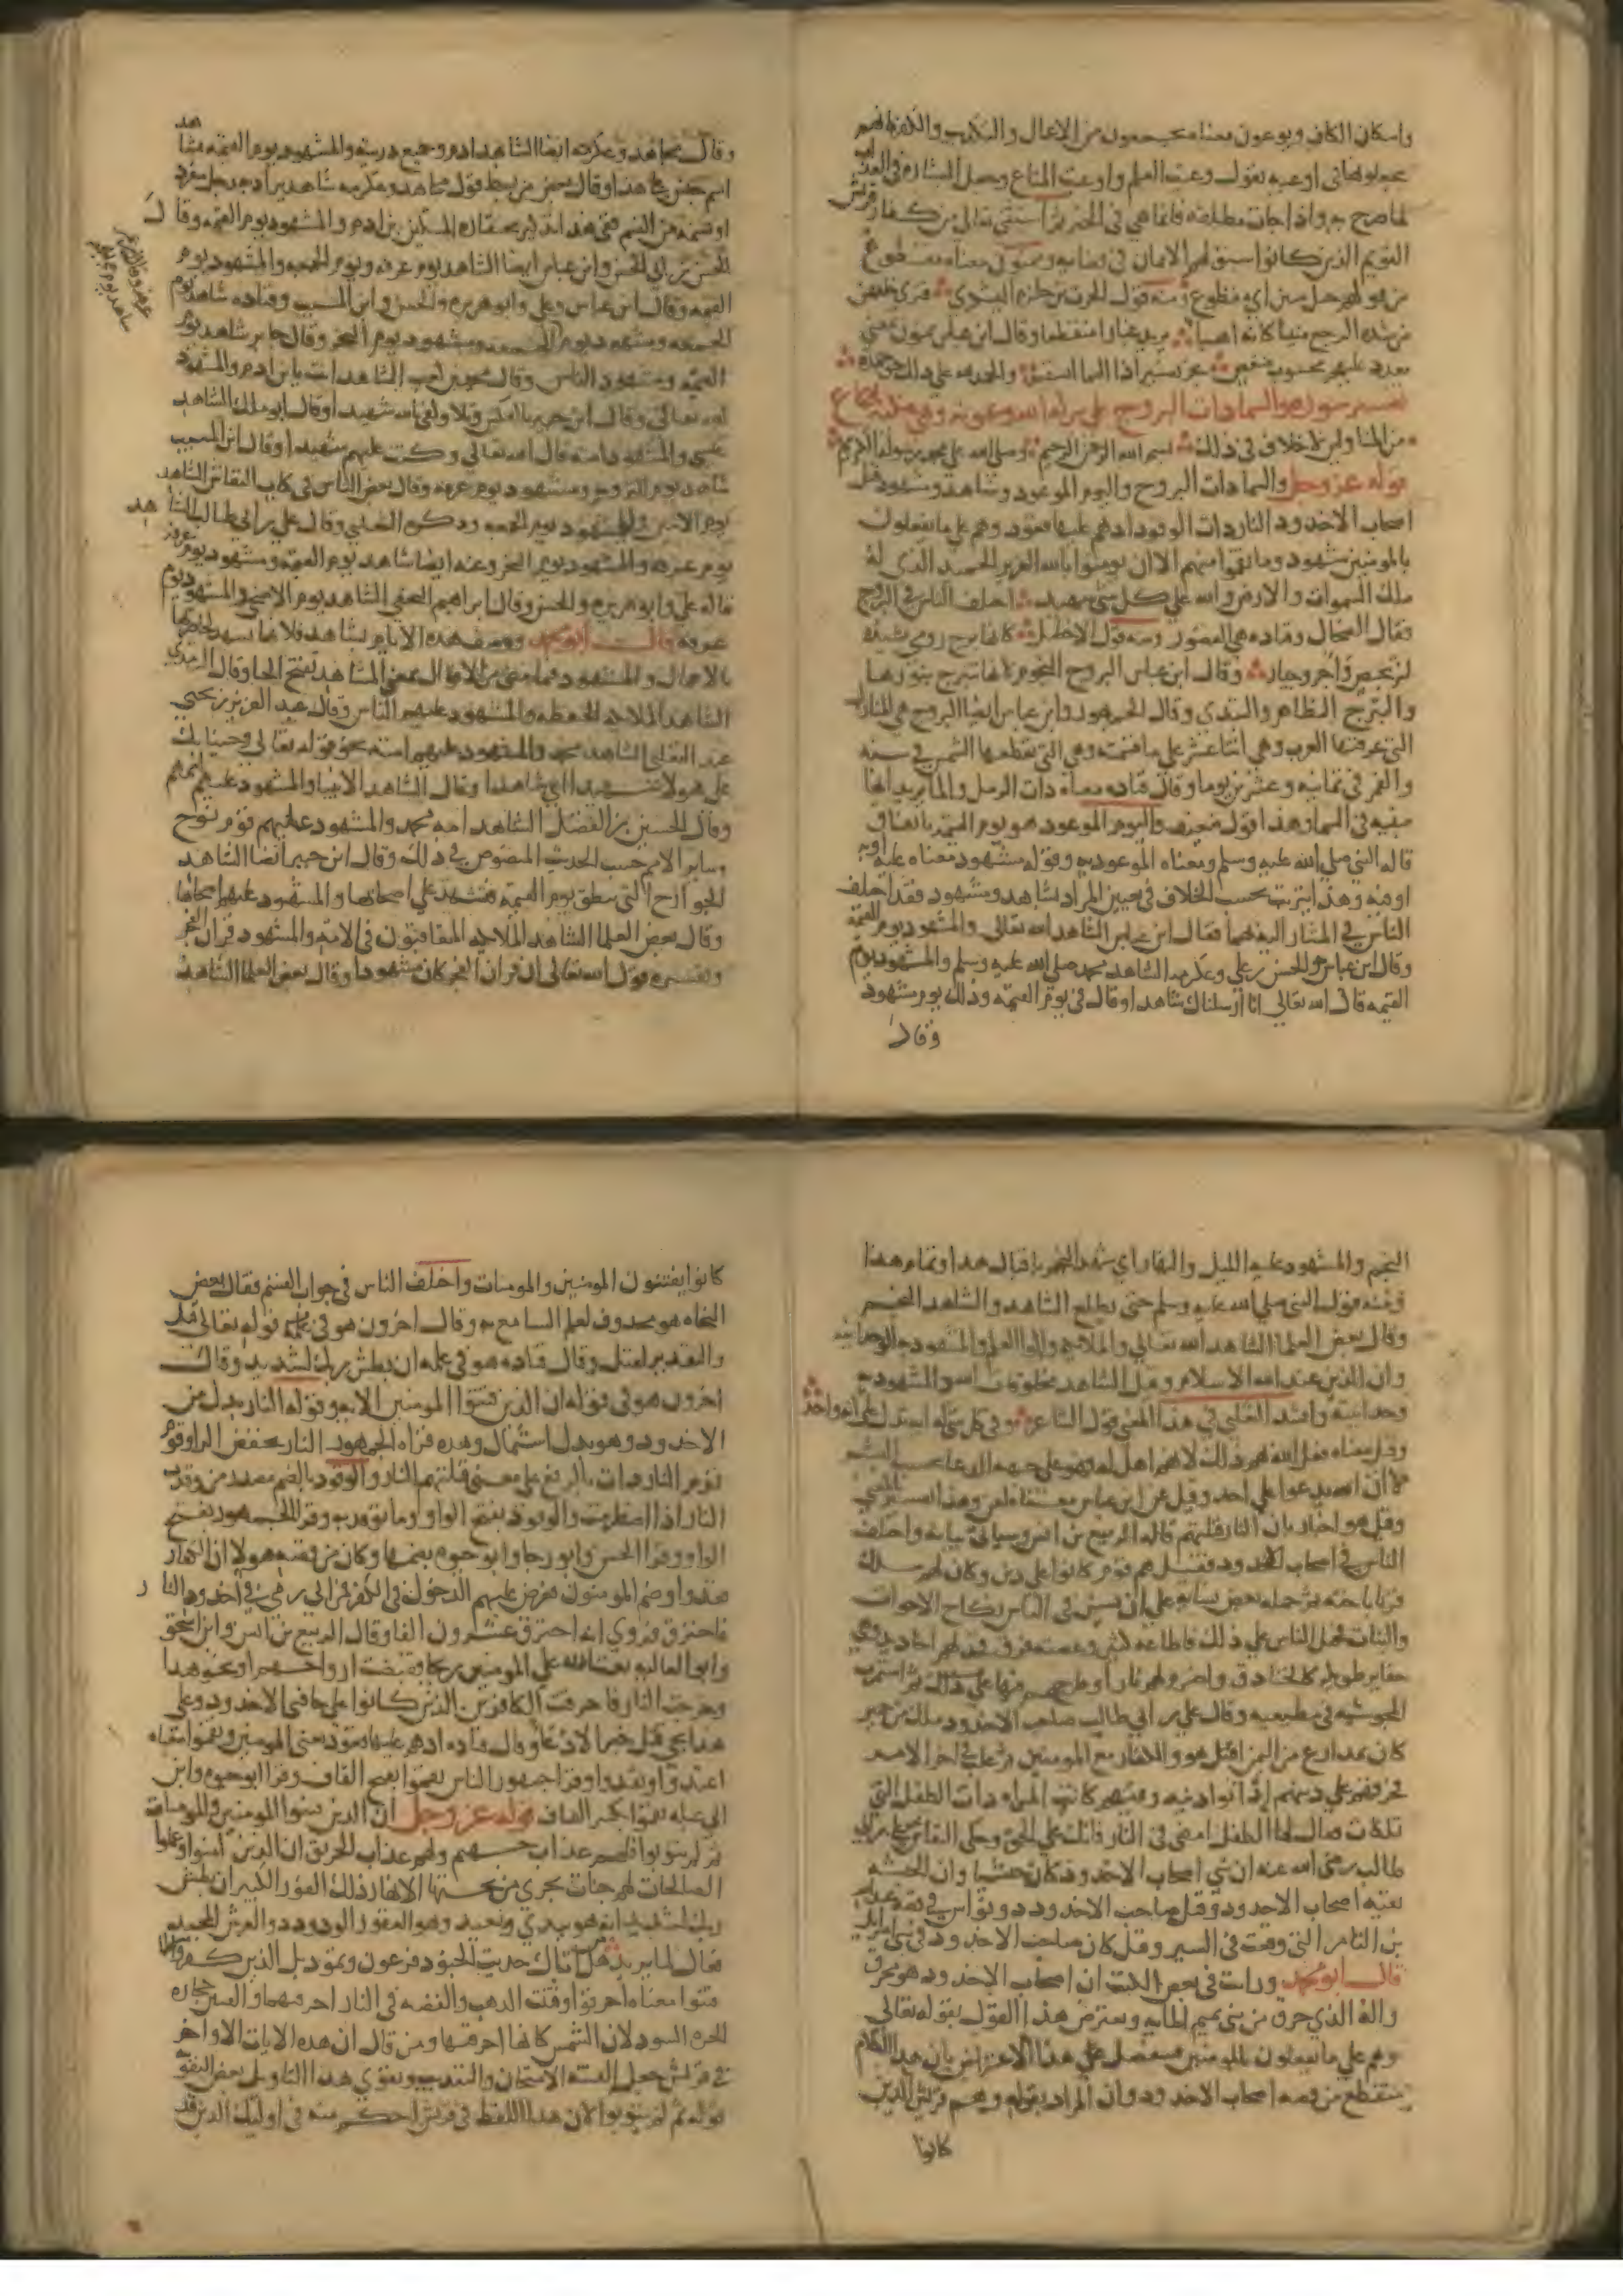 واسكان الكاف ويوعون معناه يجمعون من الاعمال والتكذيب والكفر كانهم
يجعلونها في اوعيه تقول وعيت العلم واوعيت المتاع وجعل البشاره في العذاب
لما صرح به واذا جات مطلقه فانما هي في الخير ثم استثنى تعالى من كفار قريش
القوم الذين كانوا سبق لهم الايمان في قضايه وممنون معناه مقطوع
من قولهم حبل منين اي مقطوع ومنه قول الحرث بن حلزه اليشكري فترى خلفهن
من شده الرجع منينا كانه اهباء يريد غبارا متقطعا وقال ابن عباس ممنون معني
معدد عليهم محسوب منغص نجز تفسير اذا السما انشقت والحمد لله على ذلك حق حمده
تفسير سورة والسما ذات البروج على بركة الله وعونه وهي مكيه باجماع
من المتاولين لا خلاف في ذلك بسم الله الرحمن الرحيم وصلى الله على محمد رسوله الكريم
قوله عز وجل والسما ذات البروج واليوم الموعود وشاهد ومشهود قتل
اصحاب الاخدود النار ذات الوقود اذ هم عليها قعود وهم على ما يفعلون
بالمومنين شهود وما نقموا منهم الا ان يومنوا بالله العزيز الحميد الذي له
ملك السموات والارض والله على كل شي شهيد اختلف الناس في البروج
فقال الضحاك وقتاده هي القصور ومنه قول الاخطل كانها برج رومي يشيده
لز بجص وآجر وجيار وقال ابن عباس البروج النجوم لانها تتبرج بنورها
والتبرج التظاهر والتبدي وقال الجمهور وابن عباس ايضا البروج هي المنازل
التي عرفتها العرب وهي اثنا عشر على ما قسمته وهي التي تقطعها الشمس في سنه
والقمر في ثمانيه وعشرين يوما وقال قتاده معناه ذات الرمل والما يريد انها
مبنيه في السما وهذا قول ضعيف واليوم الموعود هو يوم القيمه باتفاق
قاله النبي صلى الله عليه وسلم ومعناه الموعود به وقوله مشهود معناه عليه اوبه
اوفيه وهذا يترتب بحسب الخلاف في تعيين المراد بشاهد ومشهود فقد اختلف
الناس في المشار اليه بهما فقال ابن عباس الشاهد الله تعالى والمشهود يوم القيمه
وقال ابن عباس والحسن بن علي وعكرمه الشاهد محمد صلى الله عليه وسلم والمشهود يوم
القيمه قال الله تعالى انا ارسلناك شاهدا وقال في يوم القيمه وذلك يوم مشهود
وقال
وقال مجاهد وعكرمه ايضا الشاهد ادم وجميع ذريته والمشهود يوم القيمه فشاهد
اسم جنس على هذا وقال بعض من بسط قول مجاهد وعكرمه شاهد يراد به رجل مفرد
او نسمه من النسم ففي هذا تذكير بحقاره المسكين بن ادم والمشهود يوم القيمه وقال
الحسن بن ابي الحسن وابن عباس ايضا الشاهد يوم عرفه ويوم الجمعه والمشهود يوم
القيمه وقال ابن عباس وعلي وابو هريره والحسن وابن المسيب وقتاده شاهد يوم
الجمعه ومشهود يوم
ومشهود يوم النحر وقال جابر شاهد يوم
القيمه ومشهود الناس وقال محمد بن كعب الشاهد انت يا بن ادم والمشهود
الله تعالى وقال ابن جبير بالعكس وتلا وكفى بالله شهيدا وقال ابو مالك الشاهد
عيسى والمشهود امته قال الله تعالى وكنت عليهم شهيدا وقال ابن المسيب
شاهد يوم الترويه ومشهود يوم عرفه وقال بعض الناس في كتاب النقاش الشاهد
يوم الاثنين والمشهود يوم الجمعه وذكره الثعلبي وقال علي بن ابي طالب الشاهد
يوم عرفه والمشهود يوم النحر وعنه ايضا شاهد يوم القيمه ومشهود يوم عرفه
قاله علي وابو هريره والحسن وقال ابراهيم النخعي الشاهد يوم الاضحى والمشهود يوم
عرفه قال ابو محمد ووصف هذه الايام بشاهد فلانها تشهد لحاضريها
بالاعمال والمشهود فيما مضى من الاقوال بمعنى المشاهد بفتح الها وقال الترمذي
الشاهد الملايكه الحفظه والمشهود عليهم الناس وقال عبد العزيز بن يحيى
عند الثعلبي الشاهد محمد والمشهود عليهم امته نحو قوله تعالى وجينا بك
على هولا شهيدا اي شاهدا وقال الشاهد الانبيا والمشهود عليهم اممهم
وقال الحسين بن الفضل الشاهد امه محمد والمشهود عليهم قوم نوح
وساير الامم حسب الحديث المنصوص في ذلك وقال ابن جبير ايضا الشاهد
الجوارح التي تنطق يوم القيمه فتشهد على اصحابها والمشهود عليهم اصحابها
وقال بعض العلما الشاهد الملايكه المتعاقبون في الامه والمشهود قران الفجر
وتفسيره قول الله تعالى ان قران الفجر كان مشهودا وقال بعض العلما الشاهد
النجم والمشهود عليه الليل والنهار اي يشهد النجم باقبال هذا وتمام هذا
ومنه قول النبي صلى الله عليه وسلم حتى يطلع الشاهد والشاهد النجم
وقال بعض العلما الشاهد الله تعالى والملايكه واولوا العلم والمشهود به الوحدانيه
وان الدين عند الله الاسلام وقيل الشاهد مخلوقات الله والمشهود به
وحدانيته وانشد الثعلبي في هذا المعنى قول الشاعر وفي كل شي له ايه تدل على انه واحد
وقيل معناه فعل الله بهم ذلك لانهم اهل له فهو على جهه الدعا بحسب البشر
لا ان الله يدعوا على احد وقيل عن ابن عباس معناه لعن وهذا تفسير بالمعنى
وقيل هو اخبار بان النار قتلتهم قاله الربيع بن انس وسياتي بيانه واختلف
الناس في اصحاب الاخدود فقيل هم قوم كانوا على دين وكان لهم ملك
فزنا باخته ثم حمله بعض نسايه على ان يسن في الناس نكاح الاخوات
والبنات فحمل الناس على ذلك فاطاعه كثير وعصته فرقه فخد لهم اخاديد وهي
حفاير طويله كالخنادق واضرم لهم نارا وطرحهم فيها
ثم استمرت
المجوسيه في مطيعيه وقال علي بن ابي طالب صاحب الاخدود ملك من حمير
كان بمدارع من اليمن اقتتل هو والكفار مع المومنين ثم غلب في اخر الامر
فحرقهم على دينهم اذ ابوا دينه وفيهم كانت المراه ذات الطفل التي
تلكات فقال لها الطفل امضي في النار فانك على الحق وحكى النقاش عن علي بن ابي
طالب رضى الله عنه ان نبي اصحاب الاخدود كان حبشيا وان الحبشه
بقيه اصحاب الاخدود وقيل صاحب الاخدود ذو نواس في قصه عبد الله
بن الثامر التي وقعت في السير وقيل كان صاحب الاخدود في بني اسرايل
قال ابو محمد ورايت في بعض الكتب ان اصحاب الاخدود هو محرق
واله الذي حرق من بني تميم المايه ويعترض هذا القول بقوله تعالى
وهم على ما يفعلون بالمومنين فينفصل على هذا الاعتراض بان هذا الكلام
منقطع من قصه اصحاب الاخدود وان المراد بقوله وهم قريش الذين
كانوا
كانوا يفتنون المومنين والمومنات واختلف الناس في جواب القسم فقال بعض
النحاه هو محذوف لعلم السامع به وقال اخرون هو في قوله تعالى قتل
والتقدير لقتل وقال قتاده هو في قوله ان بطش ربك لشديد وقال
اخرون هو في قوله ان الذين فتنوا المومنين الايه وقوله النار بدل من
الاخدود وهو بدل اشتمال وهذه قراه الجمهور النار بخفض الرا وقرا
قوم النار ذات بالرفع على معنى قتلتهم النار والوقود بالضم مصدر من وقدت
النار اذا اضطرمت والوقود بفتح الواو ما توقد به وقرا الجمهور بفتح
الواو وقرا الحسن وابو رجا وابو حيوه بضمها وكان من قصه هولا ان الكفار
قعدوا وضم المومنون فعرض عليهم الدخول في الكفر فمن ابى رمي في اخدود النار
فاحترق فروي انه احترق عشرون الفا وقال الربيع بن انس وابن اسحق
وابو العاليه بعث الله على المومنين ريحا فقبضت ارواحهم او نحو هذا
وخرجت النار فاحرقت الكافرين الذين كانوا على حافتي الاخدود وعلى
هذا يجي قتل خبرا لا دعا وقال قتاده اذ هم عليها قعود يعني المومنين ونقموا معناه
اعتدوا ونقدوا وقرا جمهور الناس نقموا بفتح القاف وقرا ابو حيوه وابن
ابي عبله نقموا بكسر القاف قوله عز وجل ان الذين فتنوا المومنين والمومنات
ثم لم يتوبوا فلهم عذاب جهنم ولهم عذاب الحريق ان الذين امنوا وعملوا
الصالحات لهم جنات تجري من تحتها الانهار ذلك الفوز الكبير ان بطش
ربك لشديد انه هو يبدي ويعيد وهو الغفور الودود ذو العرش المجيد
فعال لما يريد هل اتاك حديث الجنود فرعون وثمود بل الذين كفروا
فتنوا معناه احرقوا وفتنت الذهب والفضه في النار احرقتهما والفتين حجاره
الحره السود لان الشمس كانها احرقتها ومن قال ان هذه الايات الاواخر
في قريش جعل الفتنه الامتحان والتعذيب ويقوي هذا التاويل بعض التقويه
قوله ثم لم يتوبوا لان هذا اللفظ في قريش احكم منه في اوليك الذين قد